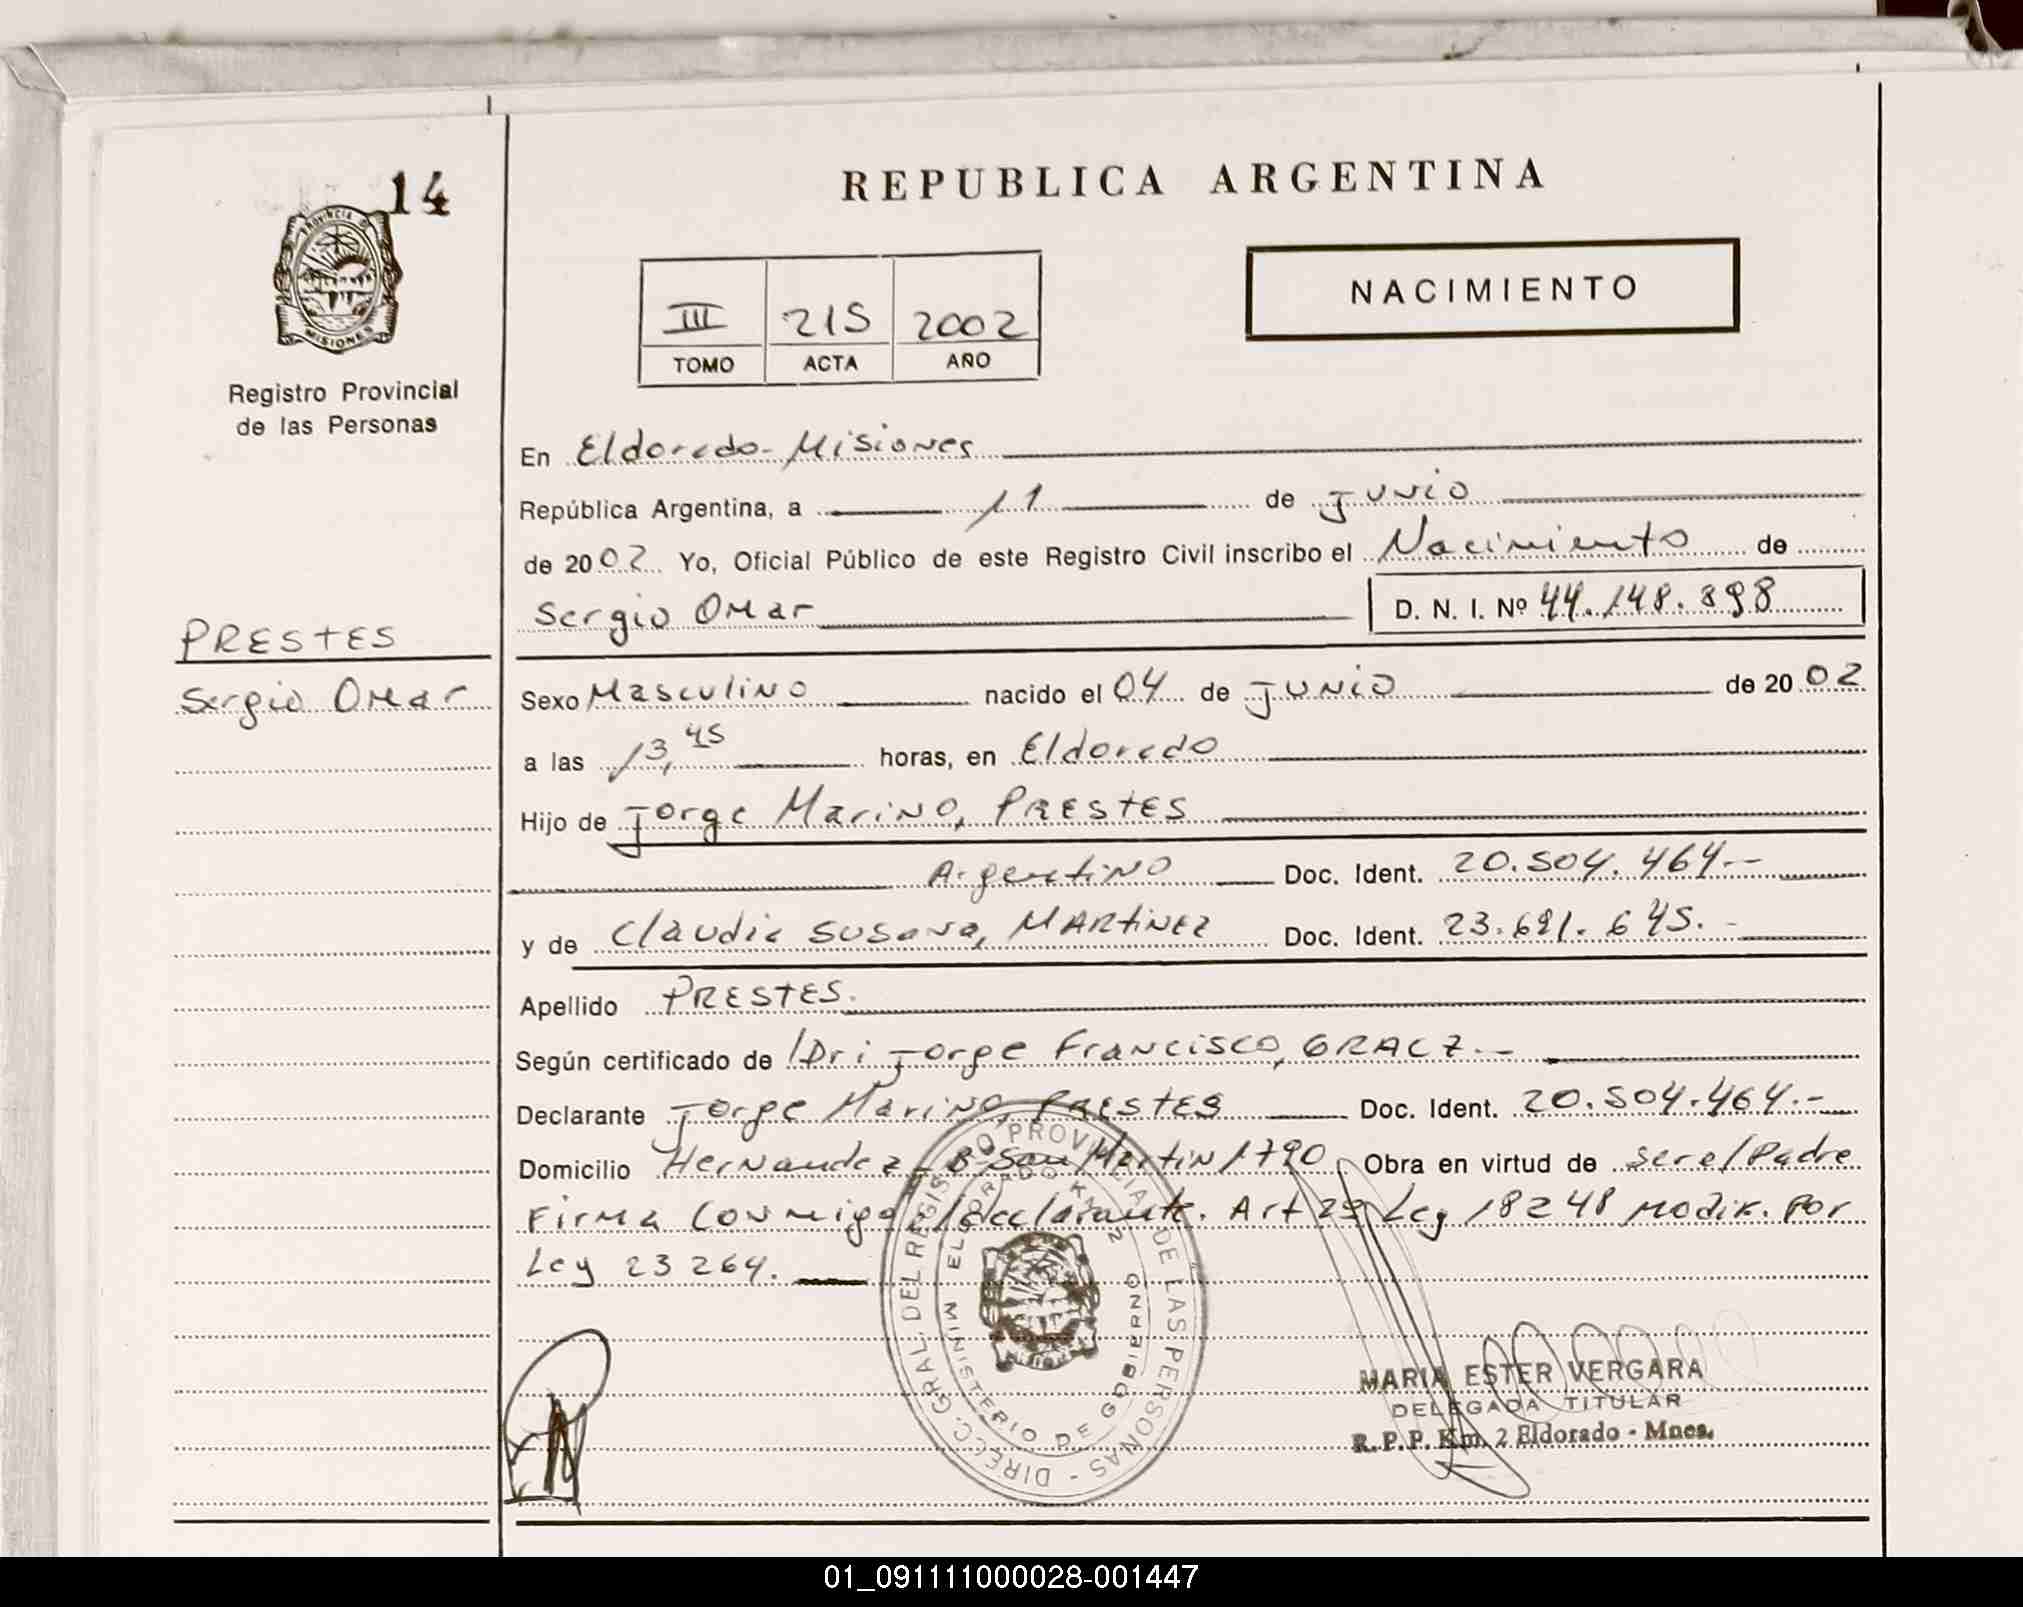 14
PROVINCIA DE
MISIONES
Registro Provincial
de las Personas
PRESTES
Sergio Omar
REPUBLICA ARGENTINA
NACIMIENTO
III 215 2002
TOMO ACTA AÑO
En Eldorado - Misiones
República Argentina, a 11 de Junio
de 2002 Yo, Oficial Público de este Registro Civil inscribo el Nacimiento de
Sergio Omar D. N. I. Nº 44.148.898
Sexo Masculino nacido el 04 de Junio de 2002
a las 13,45 horas, en Eldorado
Hijo de Jorge Marino, PRESTES
Argentino Doc. Ident. 20.504.464.-
y de Claudia Susana, MARTINEZ Doc. Ident. 23.691.645.-
Apellido PRESTES.
Según certificado de Dr: Jorge Francisco, GRACZ.-
Declarante Jorge Marino, PRESTES Doc. Ident. 20.504.464.-
Domicilio Hernandez - Bº San Martin 1790 Obra en virtud de ser el Padre
Firma Conmigo el declarante. Art 29 Ley 18248 Modif. Por
Ley 23264.
DIRECC. GRAL. DEL REGISTRO PROVINCIAL DE LAS PERSONAS -
ELDORADO KM 2
MINISTERIO DE GOBIERNO
MARIA ESTER VERGARA
DELEGADA TITULAR
R. P. P. Km. 2 Eldorado - Mnes.
01_091111000028-001447